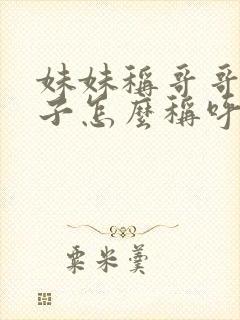 妹妹稱哥哥
子怎麼稱呼
粟米羹